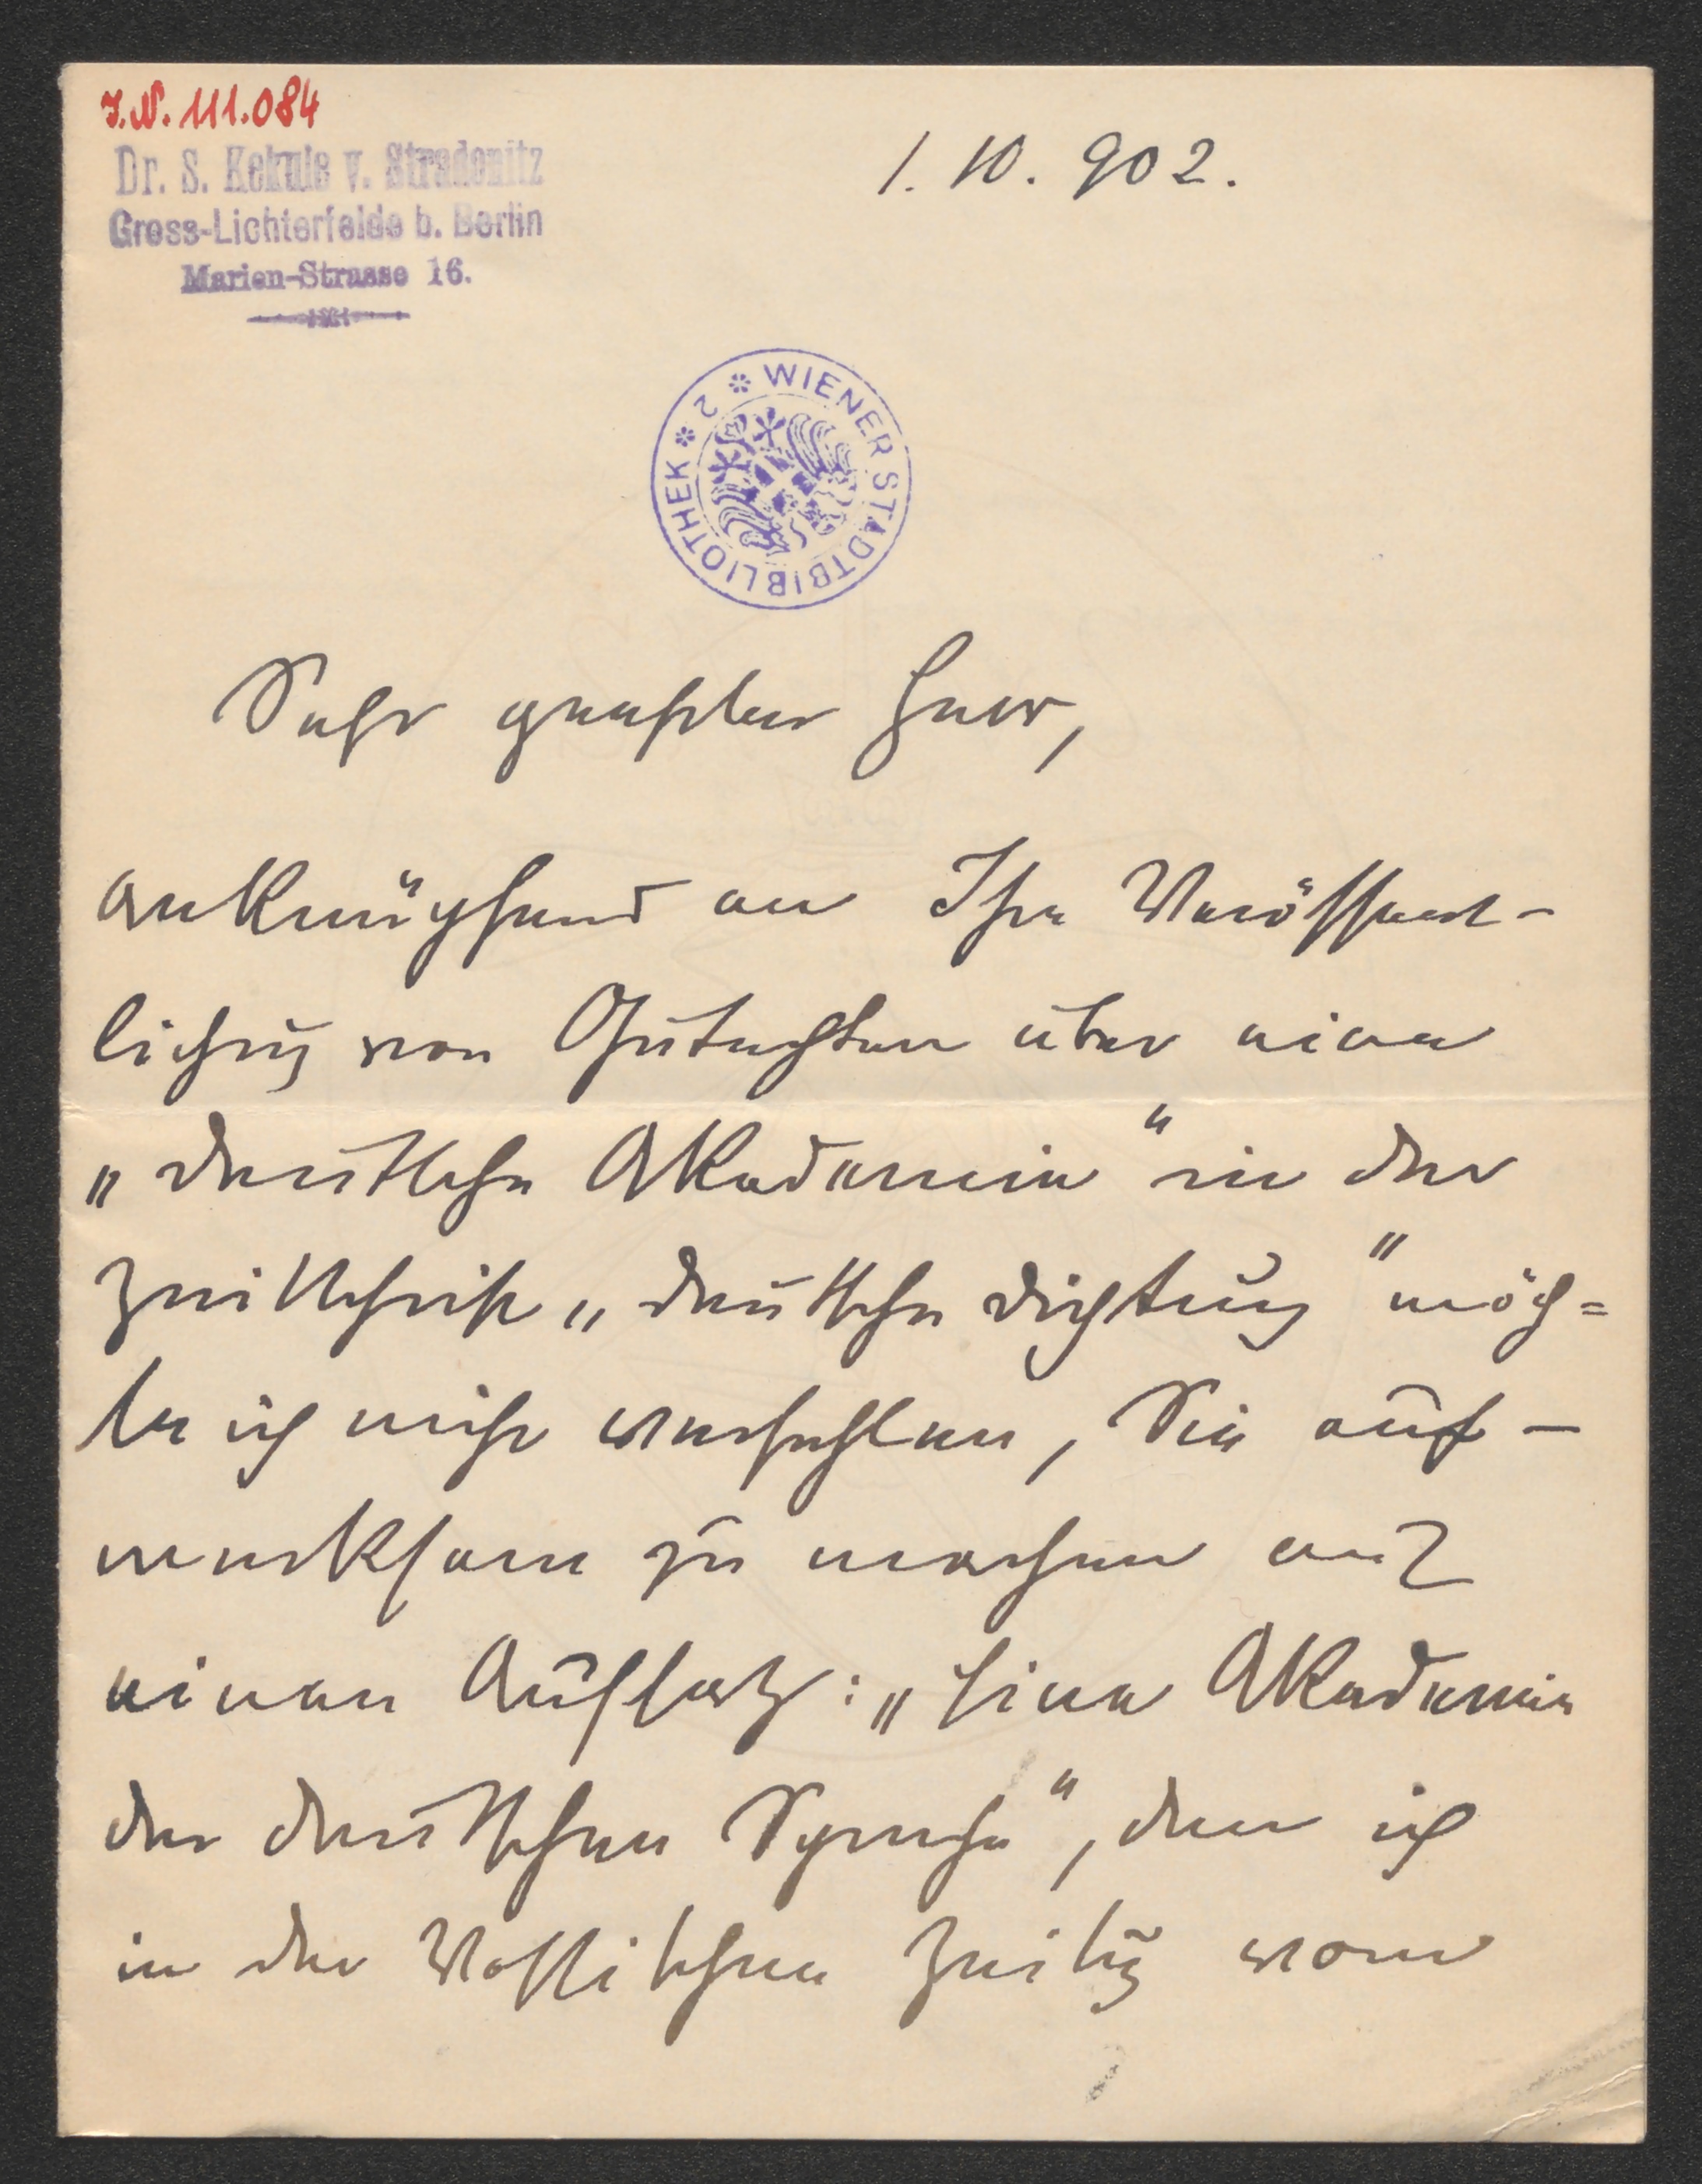 J.N. 111.084
Dr. S. Kekule v. Stradonitz
Gross-Lichterfelde b. Berlin
Marien-Strasse 16.
1. 10. 902.
WIENER STADTBIBLIOTHEK * 2 *
Sehr geehrter Herr,
anknüpfend an Ihre Veröffent-
lichung von Gutachten über eine
„deutsche Akademie" in der
Zeitschrift „deutsche Dichtung" möch=
te ich nicht verfehlen, Sie auf-
merksam zu machen auf
einen Aufsatz: „Eine Akademie
der deutschen Sprache", den ich
in der Vossischen Zeitung vom